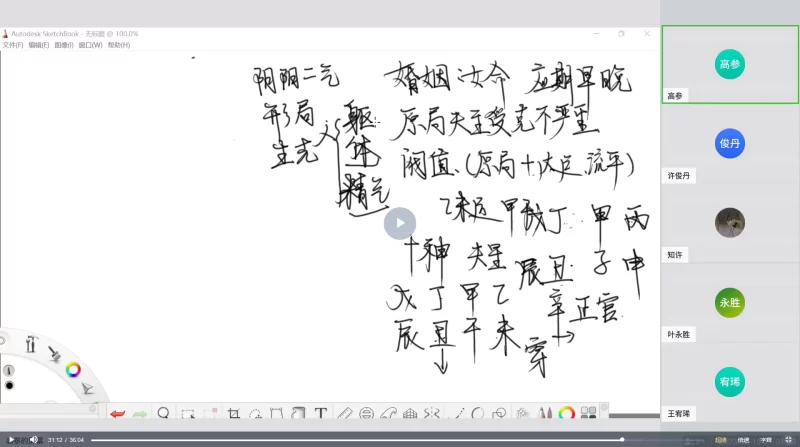 Autodesk SketchBook - 无标题 @ 100.0%
文件(F) 编辑(E) 图像(I) 窗口(W) 帮助(H)
阴阴二气
形局
生克
躯
体
精气
婚姻:女命 应期早晚
原局夫星受克不严重
阀值、(原局十大运 流年)
乙未运 甲戌丁 甲 丙
辰丑 子 申
十神 夫星
戊 丁 甲 乙
辰 丑 午 未
辛 正官
穿
T
高参
高参
俊丹
许俊丹
知许
永胜
叶永胜
宥琋
王宥琋
31:12 / 36:04
超清
倍速
字幕